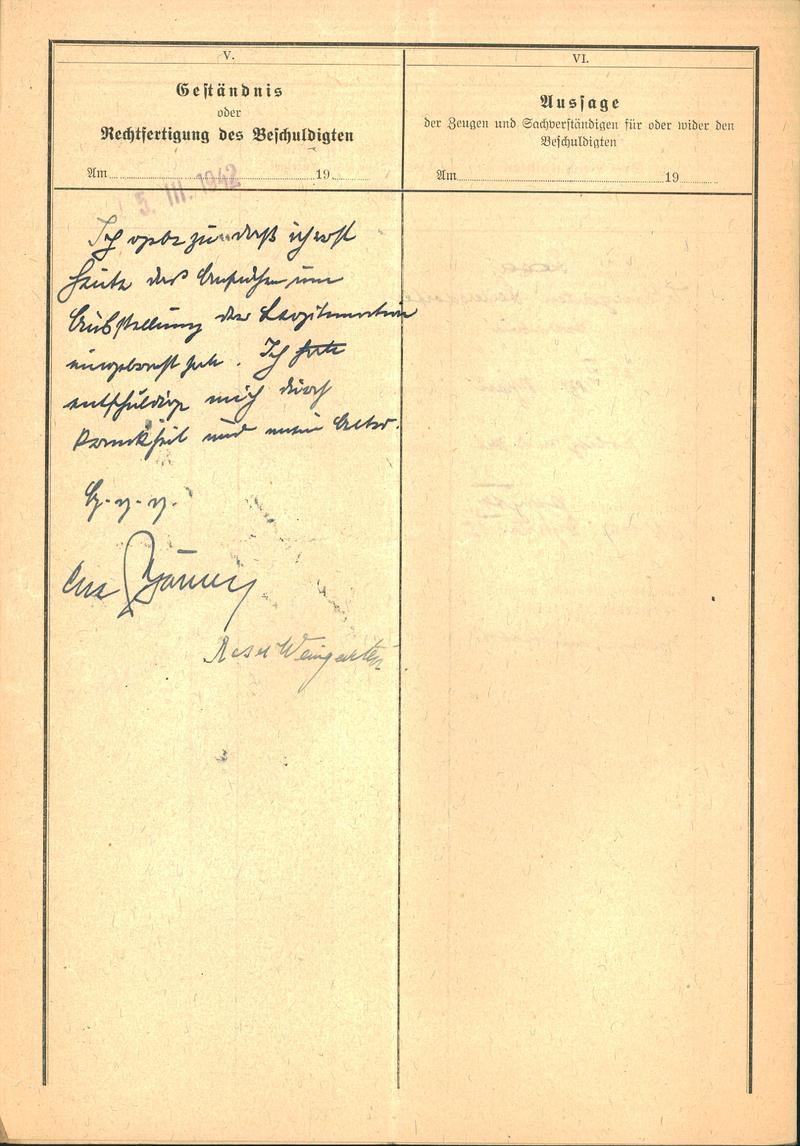 V.
Geständnis
oder
Rechtfertigung des Beschuldigten
Am 19
5. III. 1942
Ich gebe zu, daß ich erst
heute das Ansuchen um
Ausstellung der Legitimation
eingebracht habe. Ich habe
entschuldige mich durch
Krankheit und mein Alter.
G. g. g.
Rosa Weingarten
VI.
Aussage
der Zeugen und Sachverständigen für oder wider den
Beschuldigten
Am 19